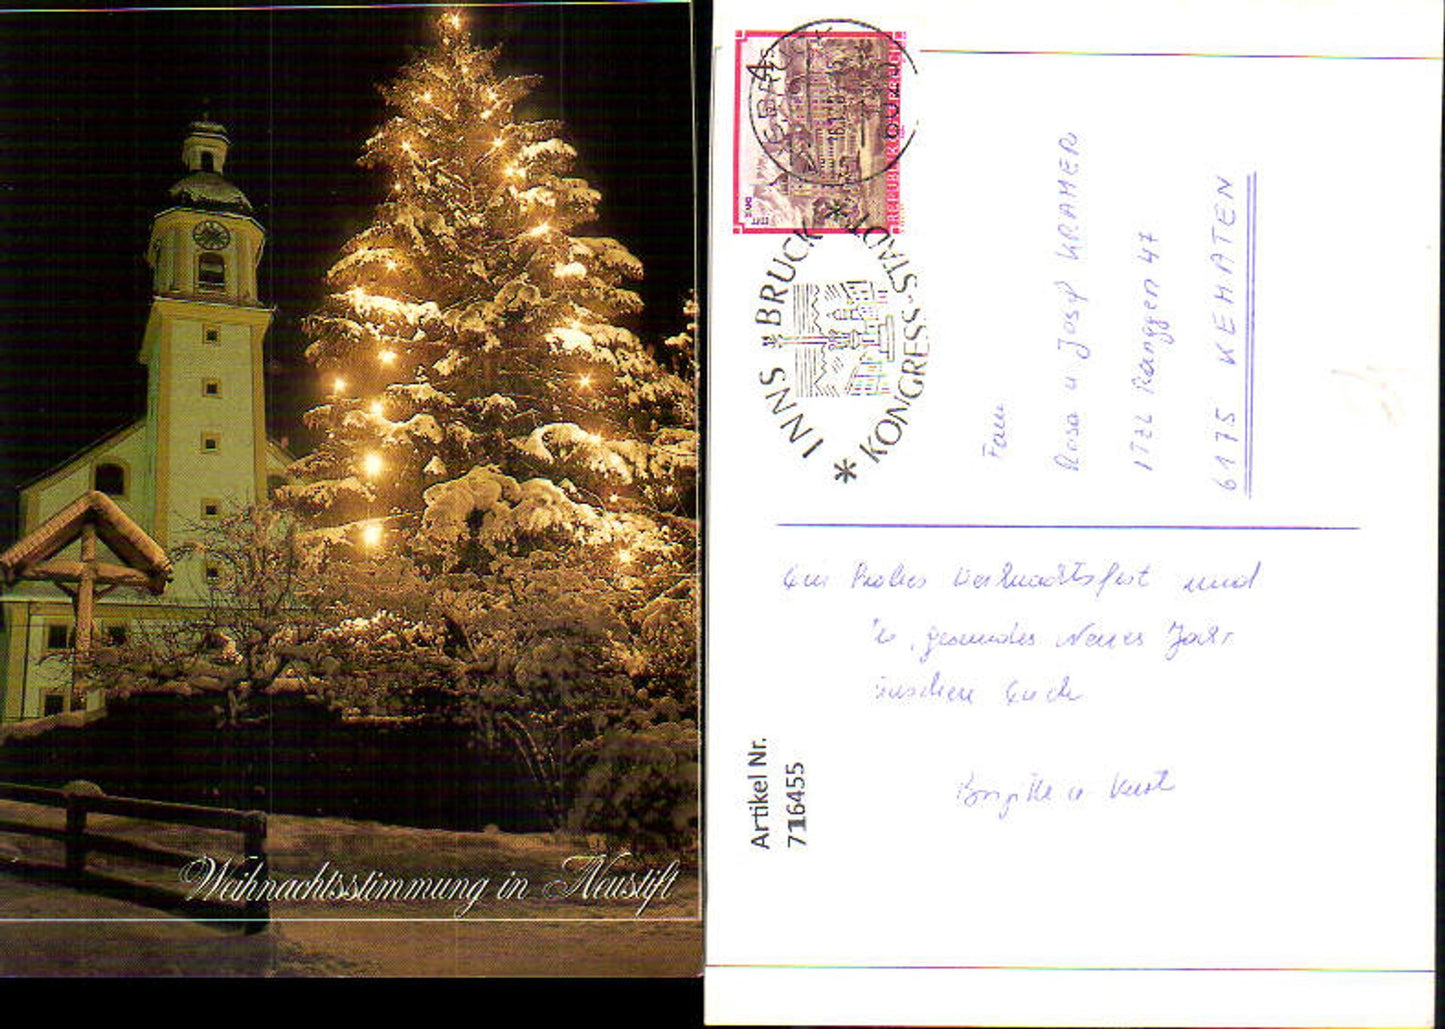 Weihnachtsstimmung in Neustift
REPUBLIK ÖSTERREICH
INNSBRUCK
KONGRESS-STADT
Frau
Rosa u Josef KRAMER
Ranggen 47
6175 KEMATEN
Ein frohes Weihnachtsfest und
gesundes Neues Jahr
wünschen Euch
Brigitte u
Artikel Nr.
716455